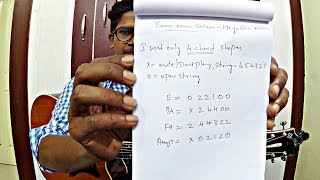 I used only 4 chord shapes
x = mute/Don't play, string - 6 5 4 3 2 1
0 = open string
E = 0 2 2 1 0 0
= x 2 4 4 0 0
= 2 4 4 3 2 2
= x 0 2 1 2 0